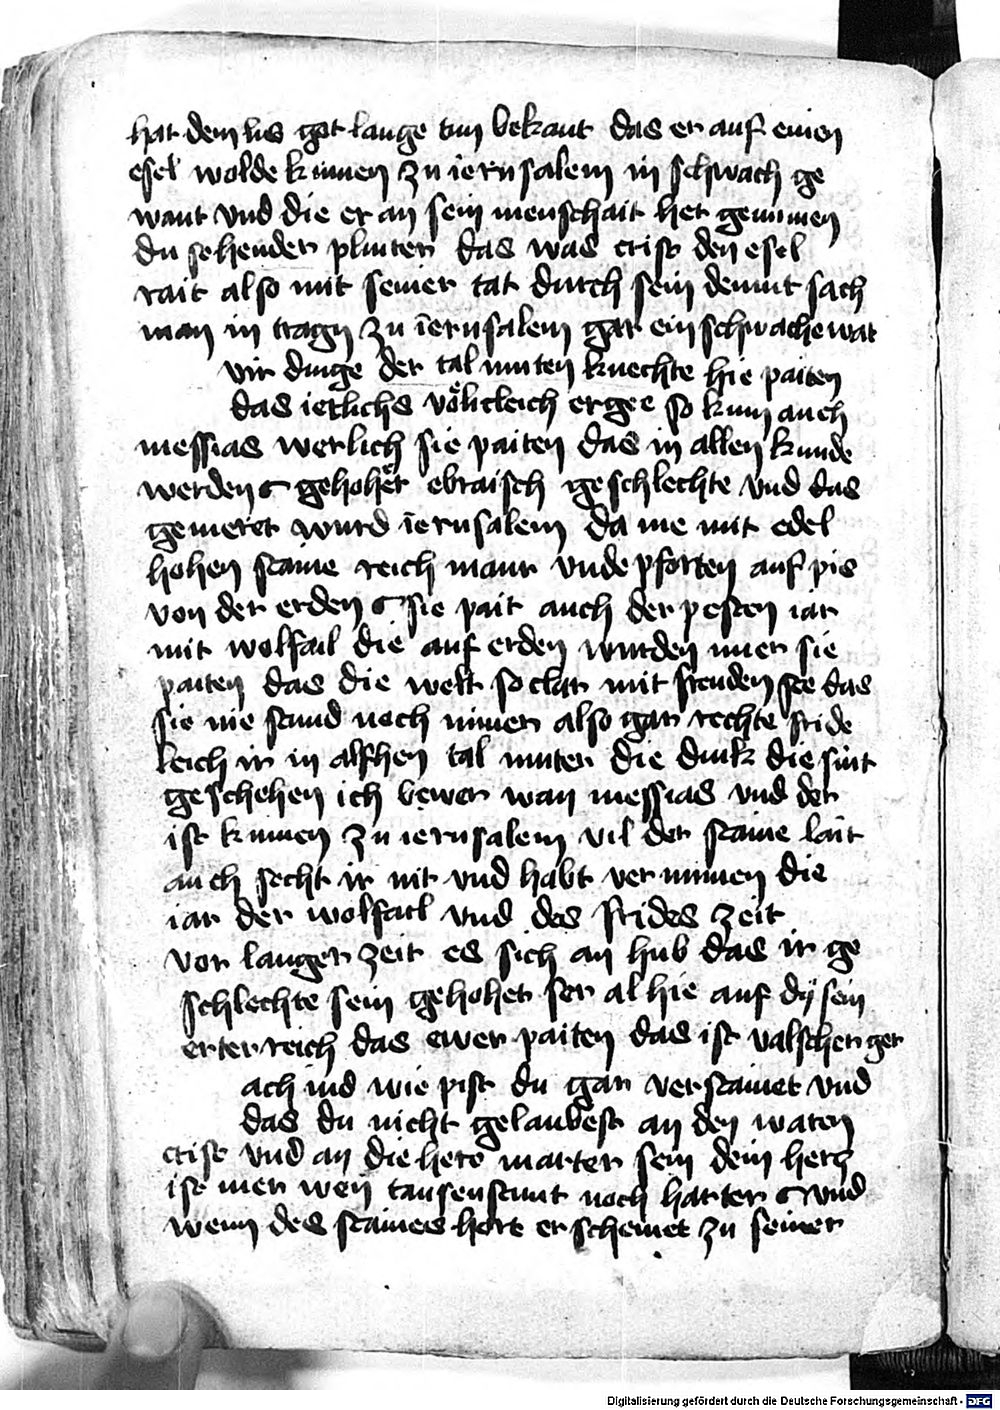 hat dem lis got lange tun bekant das er auf einen
esel wolde kumen zu ierusalem in schwach ge
want vnd die er an sein menschait het genumen
du sehender plinter das was crist den esel
rait also mit seiner tat durch sein demut sach
man in tragn zu ierusalem gar ein schwache wat
vir dinge der talmuten knechte hie paiten
das ietlichs völicleich ergee so kum auch
messias werlich sie paiten das in allen kunde
werden gehohet ebraisch geschlechte vnd das
gemeret wurd ierusalem da me mit edel
hohen staine reich maur vnde pforten auf pis
von der erden sie pait auch der pesten iar
mit wolfail die auf erden wurden imer sie
paiten das die welt so clar mit freuden ste das
sie nie stund noch nimer also gar rechte fride
leich ir in alschen talmuter die dink die sint
geschehen ich bewer wan messias vnd der
ist kumen zu ierusalem vil der staine lait
auch secht ir nit vnd habt vernumen die
iar der wolfail vnd des frides zeit
vor langer zeit es sich an hub das ir ge
schlechte sein gehohet ser alhie auf dÿsem
erterreich das ewer paiten das ist valscher ger
ach iud wie pist du gar verstainet vnd
das du nicht gelaubest an den waren
crist vnd an die here marter sein dein herz
ist mer wen tausenstunt noch harter vnd
wenn des staines hert erscheinet zu seiner
Digitalisierung gefördert durch die Deutsche Forschungsgemeinschaft - DFG